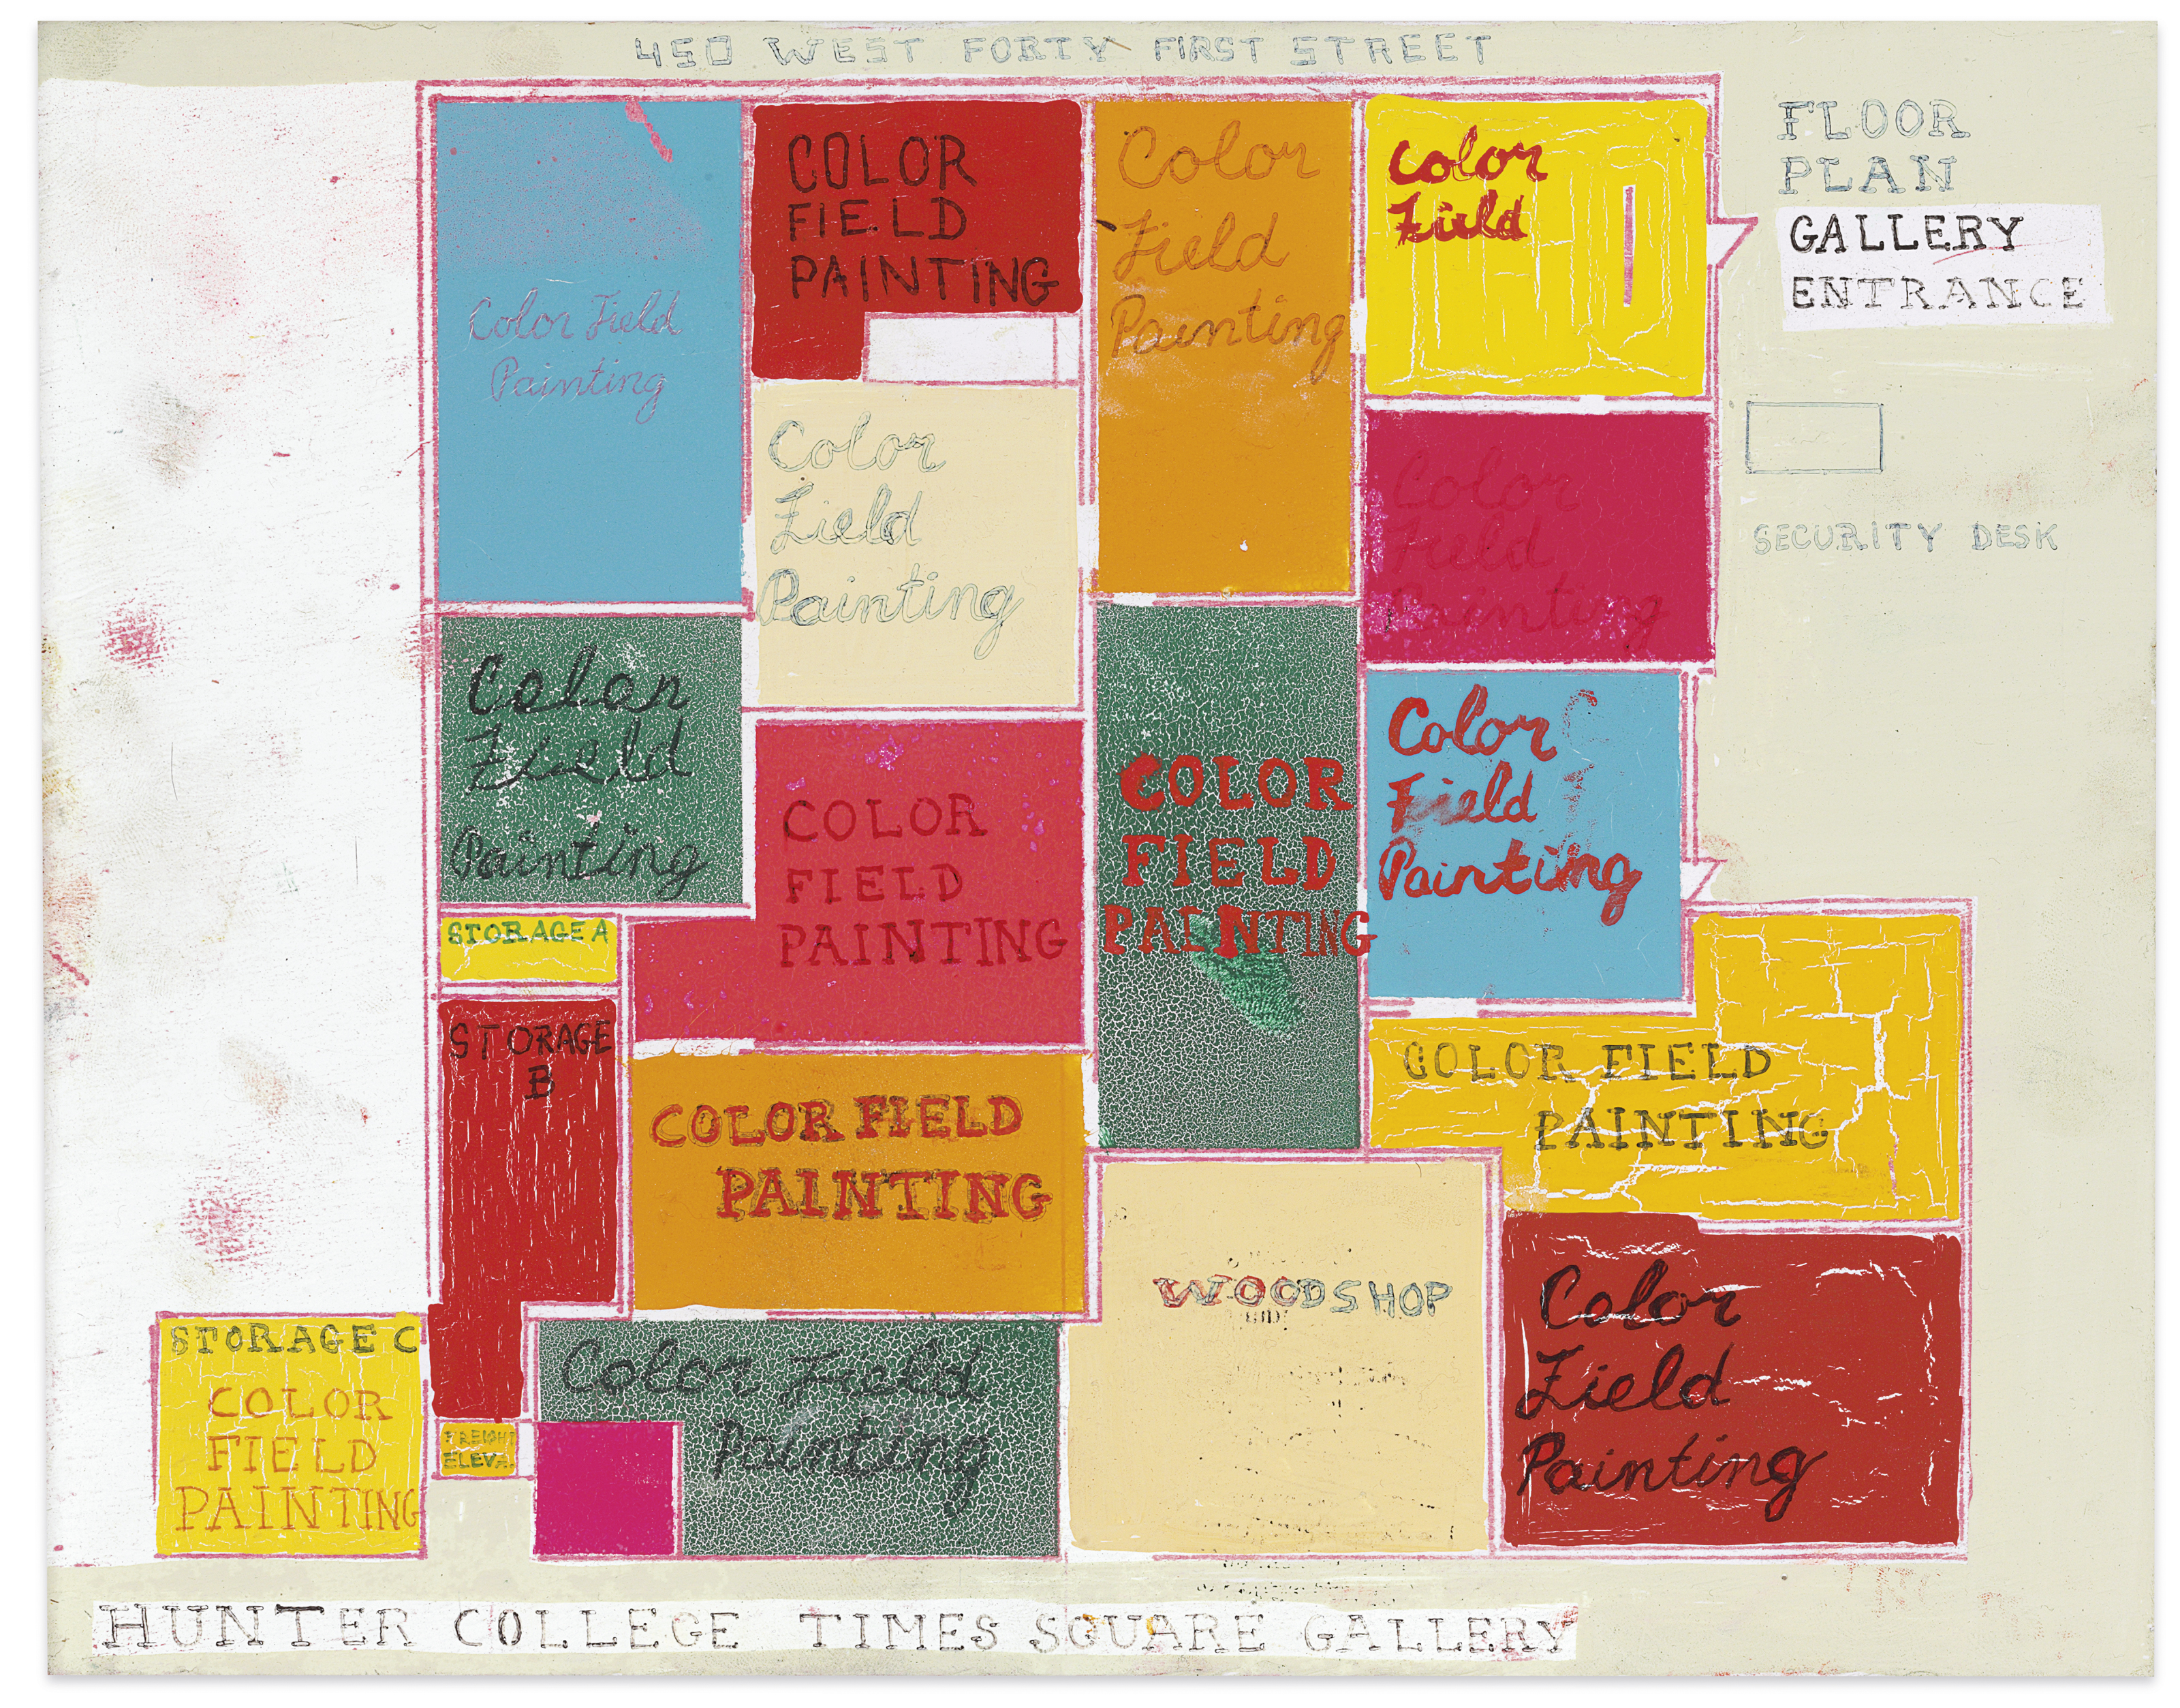 450 WEST FORTY FIRST STREET
FLOOR
PLAN
GALLERY
ENTRANCE
SECURITY DESK
Color Field
Painting
COLOR
FIELD
PAINTING
Color
Field
Painting
Color
Field
Color
Field
Painting
Color
Field
Painting
Color
Field
Painting
COLOR
FIELD
PAINTING
COLOR
FIELD
PAINTING
Color
Field
Painting
STORAGE A
STORAGE
B
COLOR FIELD
PAINTING
COLOR FIELD
PAINTING
WOODSHOP
Color
Field
Painting
STORAGE C
COLOR
FIELD
PAINTING
FREIGHT
ELEV.
Color Field
Painting
HUNTER COLLEGE TIMES SQUARE GALLERY